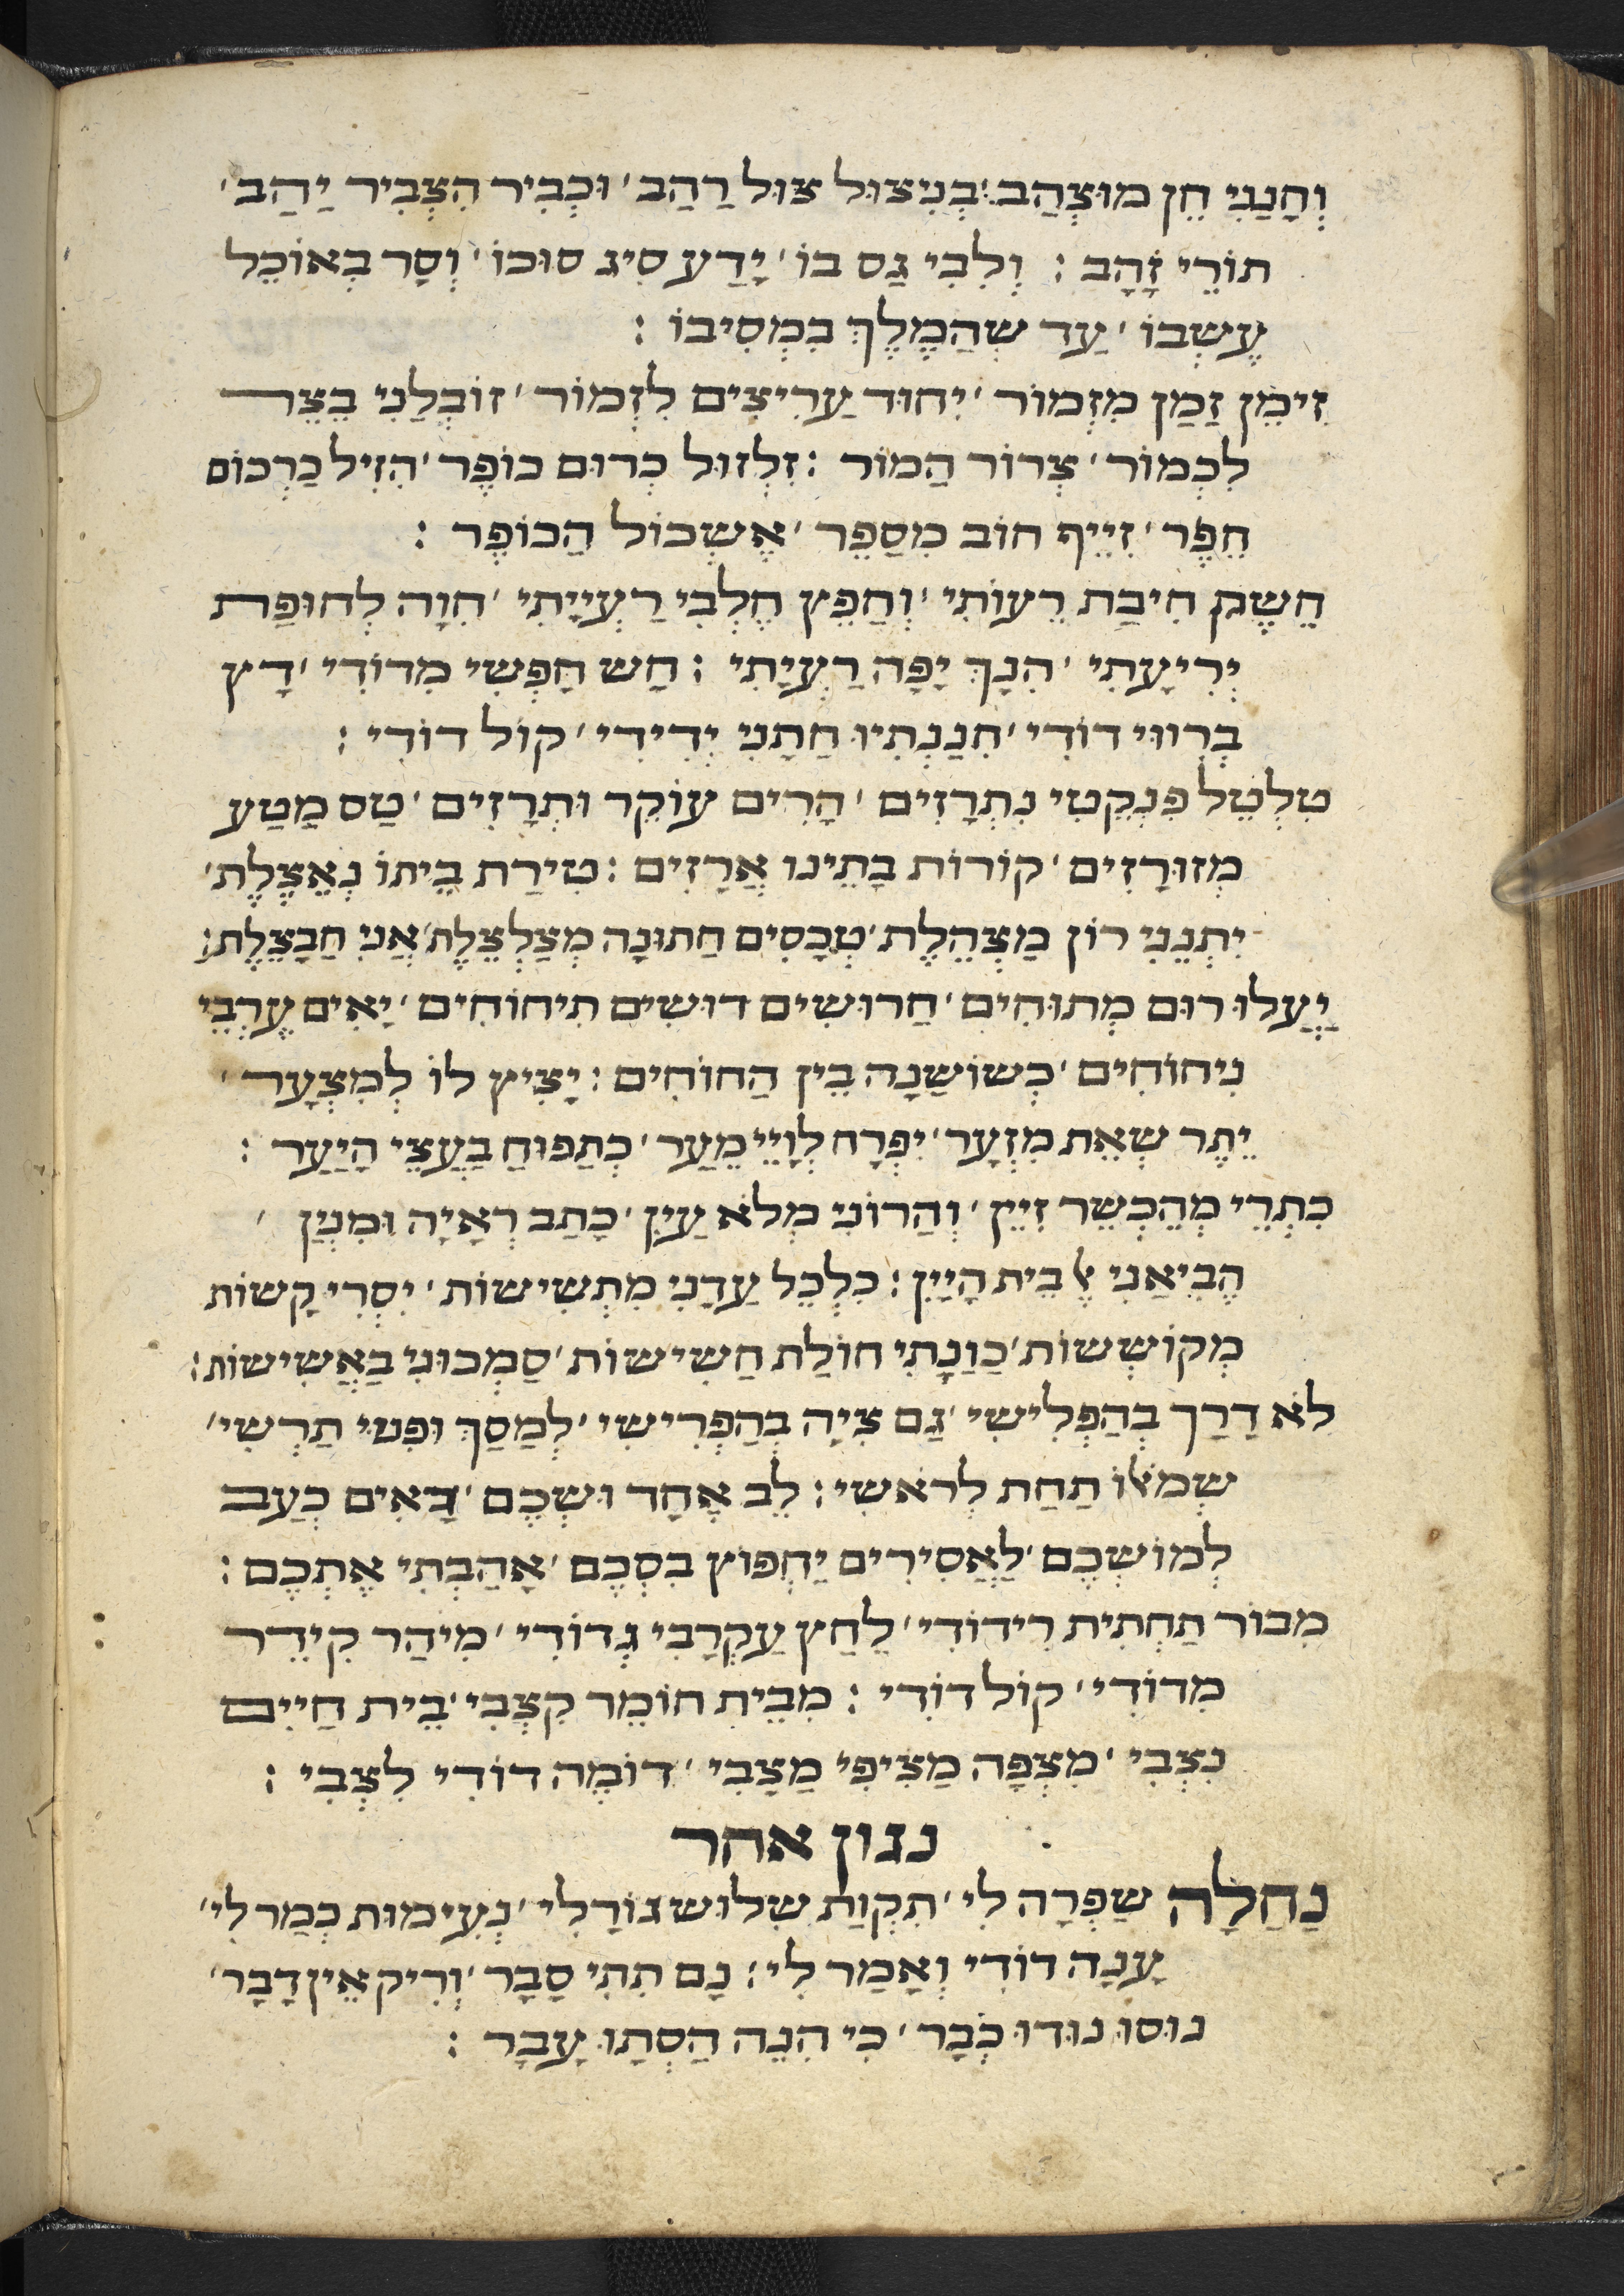 וְחָנַנִי חֵן מוּצְהַב׳ בְּנִיצוּל צוּל רַהַב׳ וּכְבִיר הִצְבִיר יַהַב׳
תוֹרֵי זָהָב : וְלִבִי גַס בוֹ׳ יָדַע סִיג סוּכּוֹ׳ וְסָר בְאוֹכֶל
עֶשְבוֹ׳ עַד שֶהַמֶלֶךְ בִמְסִיבוֹ :
זִימֵן זְמַן מִזְמוֹר׳ יִחוּד עַרִיצִים לִזְמוֹר׳ זוֹבְלַנִי בְצֵר
לִכְמוֹר׳ צְרוֹר הַמוֹר : זִלְזוּל כְרוּם כוֹפֶר׳ הִזִיל כַרְכוֹם
חֵפֶר׳ זִיֵיף חוֹב מִסַפֵר׳ אֶשְכוֹל הַכוֹפֶר :
חֵשֶק חִיבַת רֵעוּתִי׳ וְחֵפֶץ חֶלְבִי רַעְיָיתִי׳ חִוָה לְחוּפַת
יְרִיעָתִי׳ הִנָךְ יָפָה רַעְיָתִי : חַש חָפְשִי מִדוֹדִי׳ דָץ
בְרִווּי דוֹדִי׳ חִנַנְתִיו חַתָנִי יְדִידִי׳ קוֹל דוֹדִי :
טִלְטֵל פִנְקְטִי נִתְרָזִים׳ הָרִים עוֹקֵר וּתְרָזִים׳ טַס מַטַע
מְזוּרָזִים׳ קוֹרוֹת בָתֵינוּ אֲרָזִים : טִירַת בֵיתוֹ נֶאֱצֶלֶת׳
יִתְנֵנִי רוֹן מַצְהֶלֶת׳ טְכָסִים חַתוּנָה מְצַלְצֶלֶת׳ אֲנִי חַבַצֶלֶת :
יַעֲלוּ רוּם מְתוּחִים׳ חַרוּשִים דוּשִים תִיחוֹחִים׳ יָאִים עֶרְבֵי
נִיחוֹחִים׳ כְשוֹשַנָה בֵין הַחוֹחִים : יָצִיץ לוֹ לְמִצְעָר׳
יֶתֶר שְאֵת מִזְעָר׳ יִפְרָח לְוָיֵי מֵעַר׳ כְתַפוּחַ בַעֲצֵי הַיַעַר :
כִתְרֵי מְהֻכְשֵר זִיֵין׳ וְהַרוֹנִי מְלֹא עַיִן׳ כָתַב רְאָיָה וּמִנְיַן׳
הֱבִיאַנִי אֶל בֵית הַיָיִן : כִלְכֵל עַדָנִי מִתְשִישוֹת׳ יִסְרֵי קָשוֹת
מְקוֹשְשוֹת׳ כַוָנָתִי חוֹלַת חַשִישוֹת׳ סַמְכוּנִי בַאֲשִישוֹת :
לֹא דָרַךְ בְהַפְלִישִי׳ גַם צִיָה בְהַפְרִישִי׳ לְמַסַךְ וּפְטִי תַרְשִי׳
שְמֹאלוֹ תַחַת לְרֹאשִי : לֵב אֶחָד וּשְכֶם׳ בָאִים כְעַב
לְמוֹשְכֶם׳ לַאֲסִירִים יַחְפוֹץ בִסְכֶם׳ אָהַבְתִי אֶתְכֶם :
מִבוֹר תַחְתִית רִידוֹדִי׳ לַחַץ עַקְרָבִי גְדוֹדִי׳ מִיהַר קִידֵר
מִדוֹדִי׳ קוֹל דוֹדִי : מִבֵית חוֹמֶר קִצְבִי׳ בֵית חַיִים
נִצְבִי׳ מִצְפָה מַצִיפִי מַצָבִי׳ דוֹמֶה דוֹדִי לִצְבִי :
נגון אחר
נַחַלָה שַפְרָה לִי׳ תִקְוַת שִלוּש גוֹרָלִי׳ נְעִימוּת כְמַר לִי׳
עָנָה דוֹדִי וְאָמַר לִי : נָם תִתִי סָבָר׳ וְרִיק אֵין דָבָר׳
נוּסוּ נוּדוּ כְבָר׳ כִי הִנֵה הַסְתָו עָבָר :